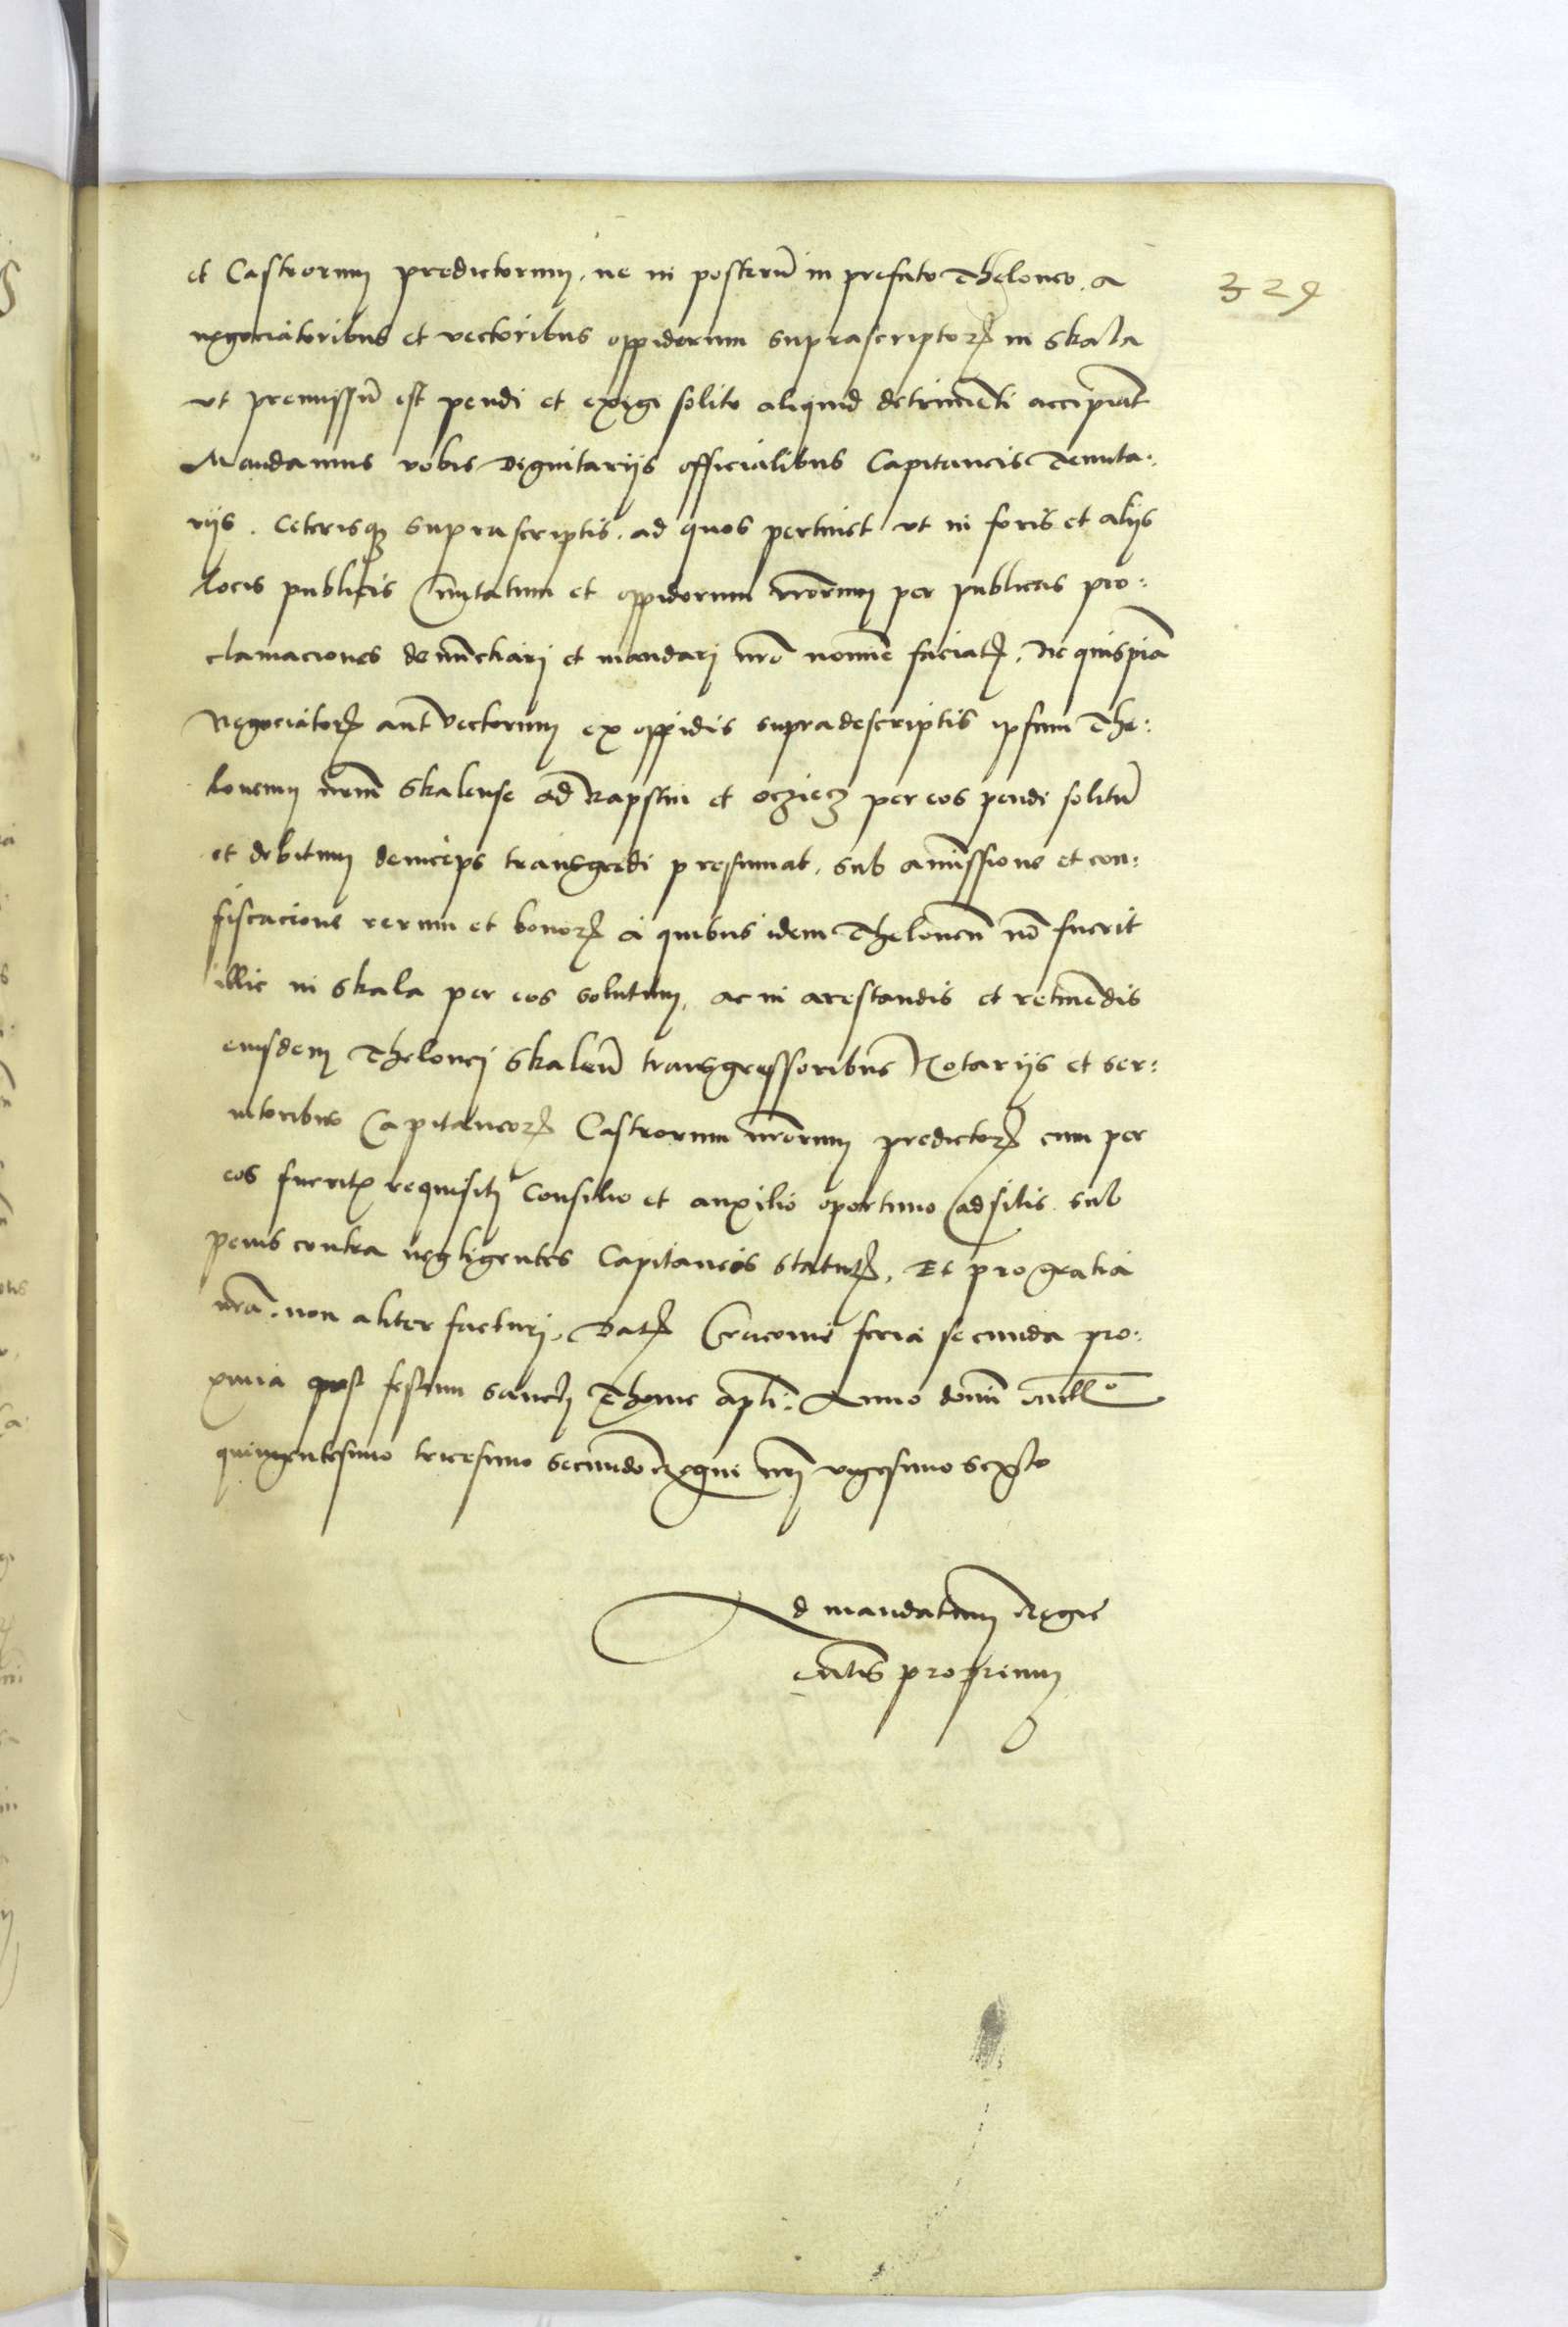 et Castrorum predictorum, ne in posterũ in prefato Theloneo, a
329
negociatoribus et vectoribus oppidorum suprascriptorꝝ in Skala
vt premissũ est pendi et exigi solito aliquid detrimẽti accipiãt
Mandamus vobis Dignitarijs officialibus Capitaneis Tenuta:
rijs. Ceterisqꝫ suprascriptis, ad quos pertinet vt in foris et alijs
locis publicis Ciuitatum et oppidorum nr̃orum per publicas pro:
clamaciones denũcciari et mandari nr̃o nomine faciatꝭ, Ne quispiã
Negociatorꝝ aut vectorum ex oppidis supradescriptis ipsum The:
loneum nr̃m Skalense ad Rapstin et ocziecz per eos pendi solitũ
et debitum deinceps transgredi presumat, sub amissione et con:
fiscacione rerum et bonorꝝ a quibus idem Theloneũ nõ fuerit
illic in Skala per eos solutum, ac in arestandis et retinẽdis
eiusdem Thelonei Skaleñ transgressoribus Notarijs et ser:
uitoribus Capitaneorꝝ Castrorum nr̃orum predictorꝝ cum per
eos fueritꝭ requisiti Consilio et auxilio oportuno adsitis sub
penis contra negligentes Capitaneos statutꝭ, Et pro gratia
nr̃a, non aliter facturi, Datꝭ Cracouie feria secunda pro:
xima post festum sancti Thome apli: Anno domini Mill°
quingentesimo tricesimo secundo Regni nr̃i vigesimo sexto
Ad mandatum Regie
Mtis proprium